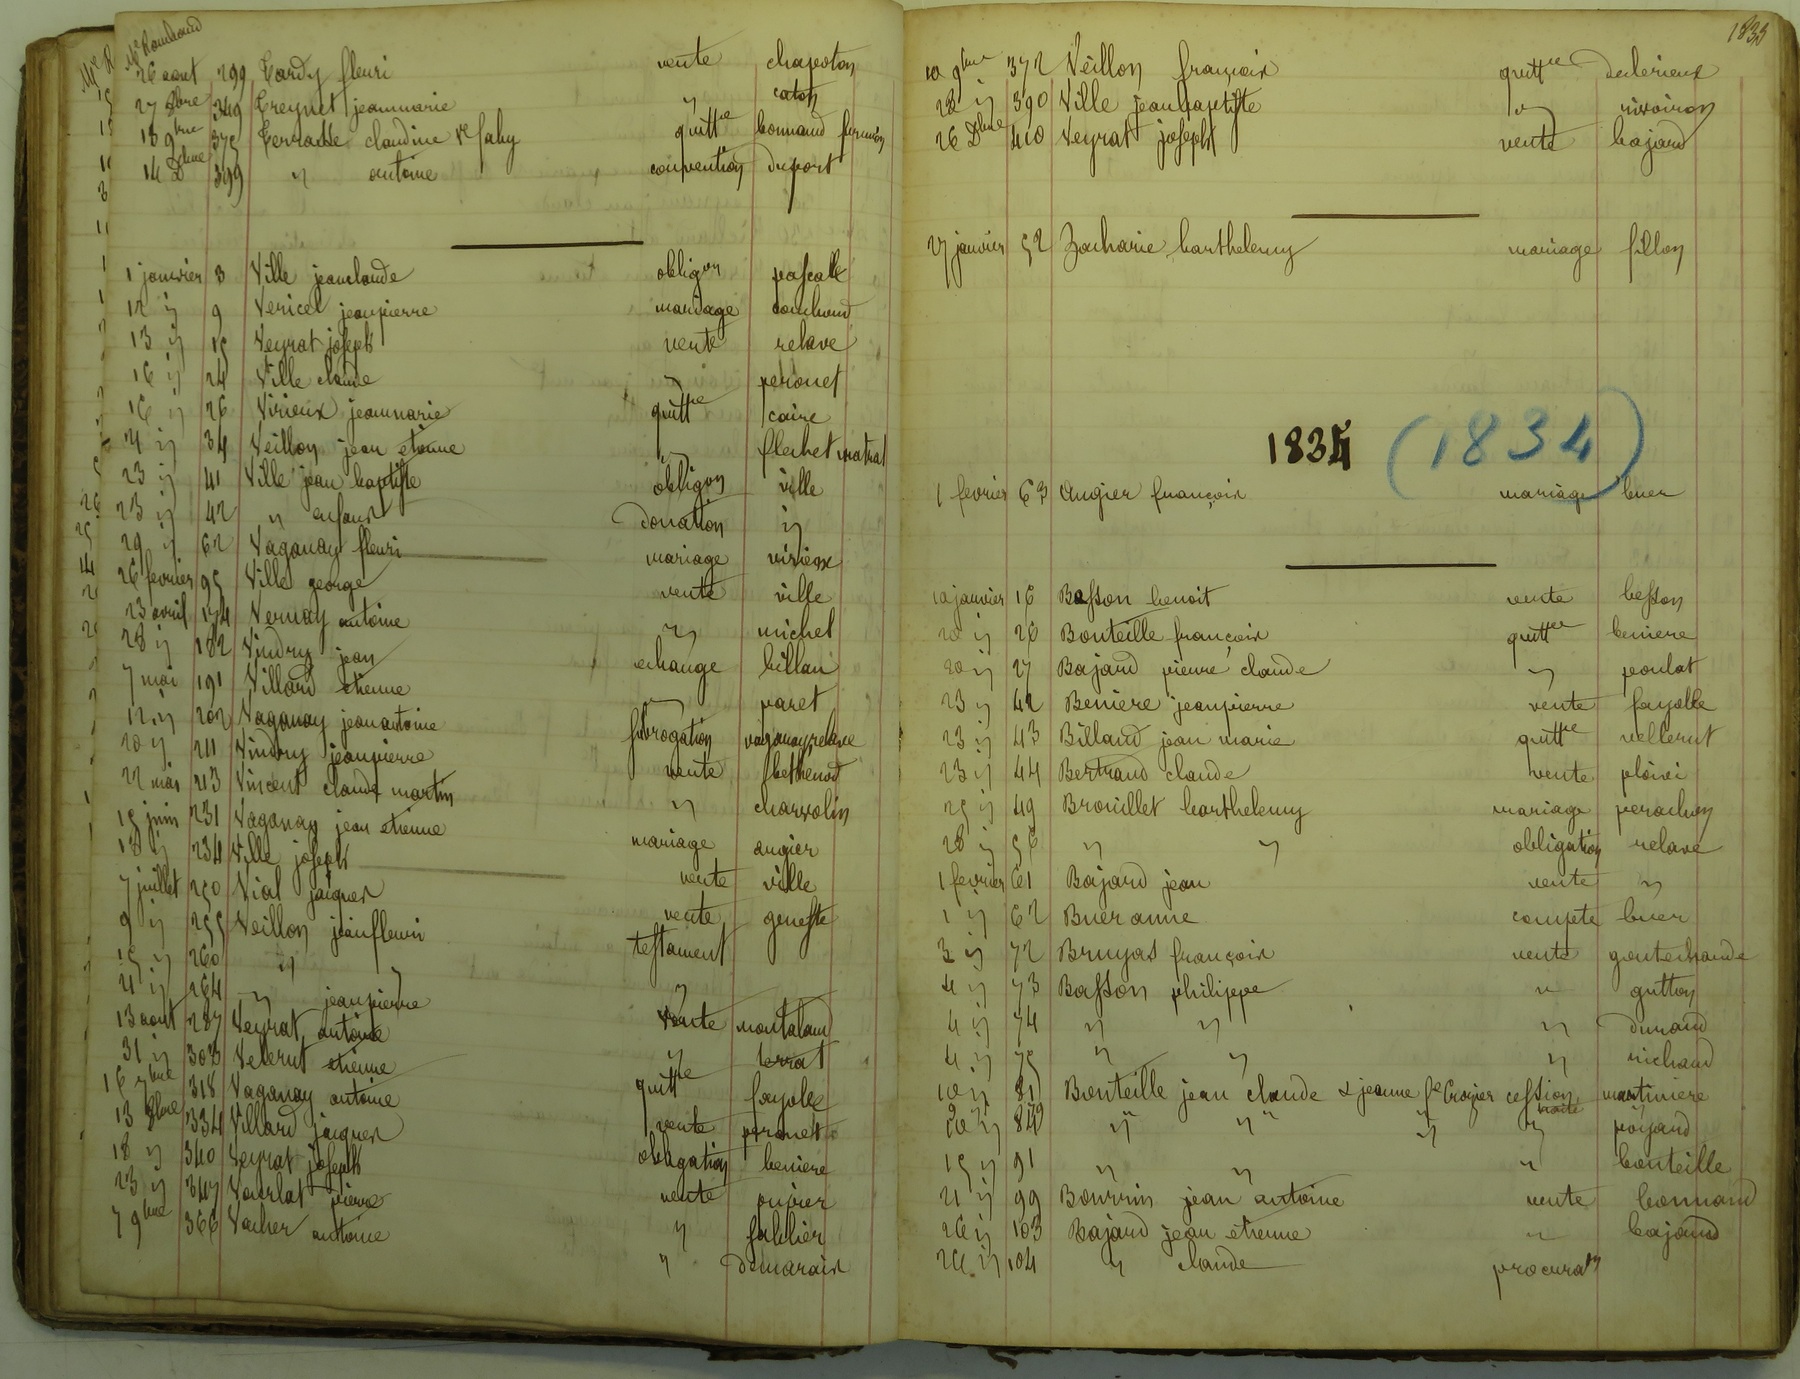 Me Rambaud
26 aout 299 Tardy fleuri vente chapoton
27 8bre 349 Treynet jeanmarie " catoy
13 9bre 375 Terrasse claudine Ve faby quittce bonnand
14 Dbre 399 " antoine convention duport
1 janvier 3 Ville jeanclaude obligon pascal
12 " 9 Vericel jeanpierre mariage
13 " 15 Veyrat joseph vente relave
16 " 24 Ville claude " peronet
16 " 26 Virieux jeanmarie quittce caire
21 " 34 Veillon jean etienne " flechet matrat
23 " 41 Ville jean baptiste obligon ville
23 " 42 " enfans donation "
29 " 62 Vaganay fleuri mariage virieux
26 fevrier 95 Ville george vente ville
23 avril 174 Vernay antoine " michel
28 " 182 Vindry jean echange billau
7 mai 191 Villard etienne " paret
12 " 202 Vaganay jeanantoine subrogation vaganay relave
20 " 211 Vindry jeanpierre vente bethenod
22 mai 213 Vincent claude martin " charvolin
15 juin 231 Vaganay jean etienne mariage augier
18 " 234 Ville joseph vente ville
7 juillet 250 Vial jaques vente geneste
9 " 255 Veillon jeanfleuri testament
15 " 260 " "
21 " 264 " jeanpierre "
13 aout 287 Veyrat antoine vente montaland
31 " 303 Velerut etienne " terrat
16 7bre 318 Vaganay antoine quittce fayolle
13 8bre 334 Villard jaques vente peronet
18 " 340 Veyrat joseph obligation beniere
23 " 347 Vourlat pierre vente ouvier
7 9bre 366 Vacher antoine "
" demarais
1835
10 9bre 372 Veillon françois quittce duclerieux
22 " 390 Ville jeanbaptiste " nivoiron
26 Dbre 410 Veyrat joseph vente bajard
27 janvier 52 Zacharie barthelemy mariage fillon
1835 (1834)
1 fevrier 63 augier françois mariage buer
10 janvier 16 Basson benoit vente besson
20 " 26 Bouteille françois quittce beniere
20 " 27 Bajard pierre claude " poulat
23 " 42 Beniere jeanpierre vente fayolle
23 " 43 Billaud jean marie quittce vellerut
23 " 44 Bertrand claude vente
25 " 49 Brouillet barthelemy mariage perachon
28 " 56 " " obligation relave
1 fevrier 61 Bajard jean vente "
1 " 62 Buer anne compete buer
3 " 72 Bruyas françois vente goutechaude
4 " 73 Basson philippe " gutton
4 " 74 " " " durand
4 " 75 " " " richaud
10 " 81 Bouteille jean claude & jeanne fe Crozier cession martiniere
20 " 89 " " " vente " poyard
15 " 91 " " " bouteille
21 " 99 Bourrin jean antoine vente bonnand
26 " 103 Bajard jean etienne " bajard
26 " 104 " claude procuraon